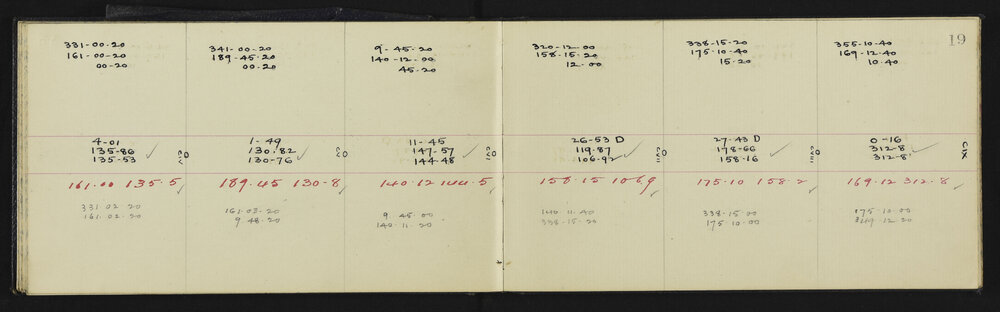 19
331-00-20
161-00-20
00-20
341-00-20
189-45-20
00-20
9-45-20
140-12-00
45-20
320-12-00
158-15-20
12-00
338-15-20
175-10-40
15-20
355-10-40
169-12-40
10-40
4-01
135-86
135-53
1-49
130.82
130-76
11-45
147-57
144-48
CVI
26-53 D
119.87
106.92
CVII
27.43 D
178-66
158-16
CVIII
0-16
312-8
312-8
CIX
161.00 135.5
189.45 130-8
140.12 144.5
158.15 106.9
175.10 158.2
169.12 312.8
331 02 20
161.02.20
161-02-20
9 48.20
9 45 00
140 11.20
140 11.40
338-15-20
338-15 00
175 10.00
175 10-00
169-12 20